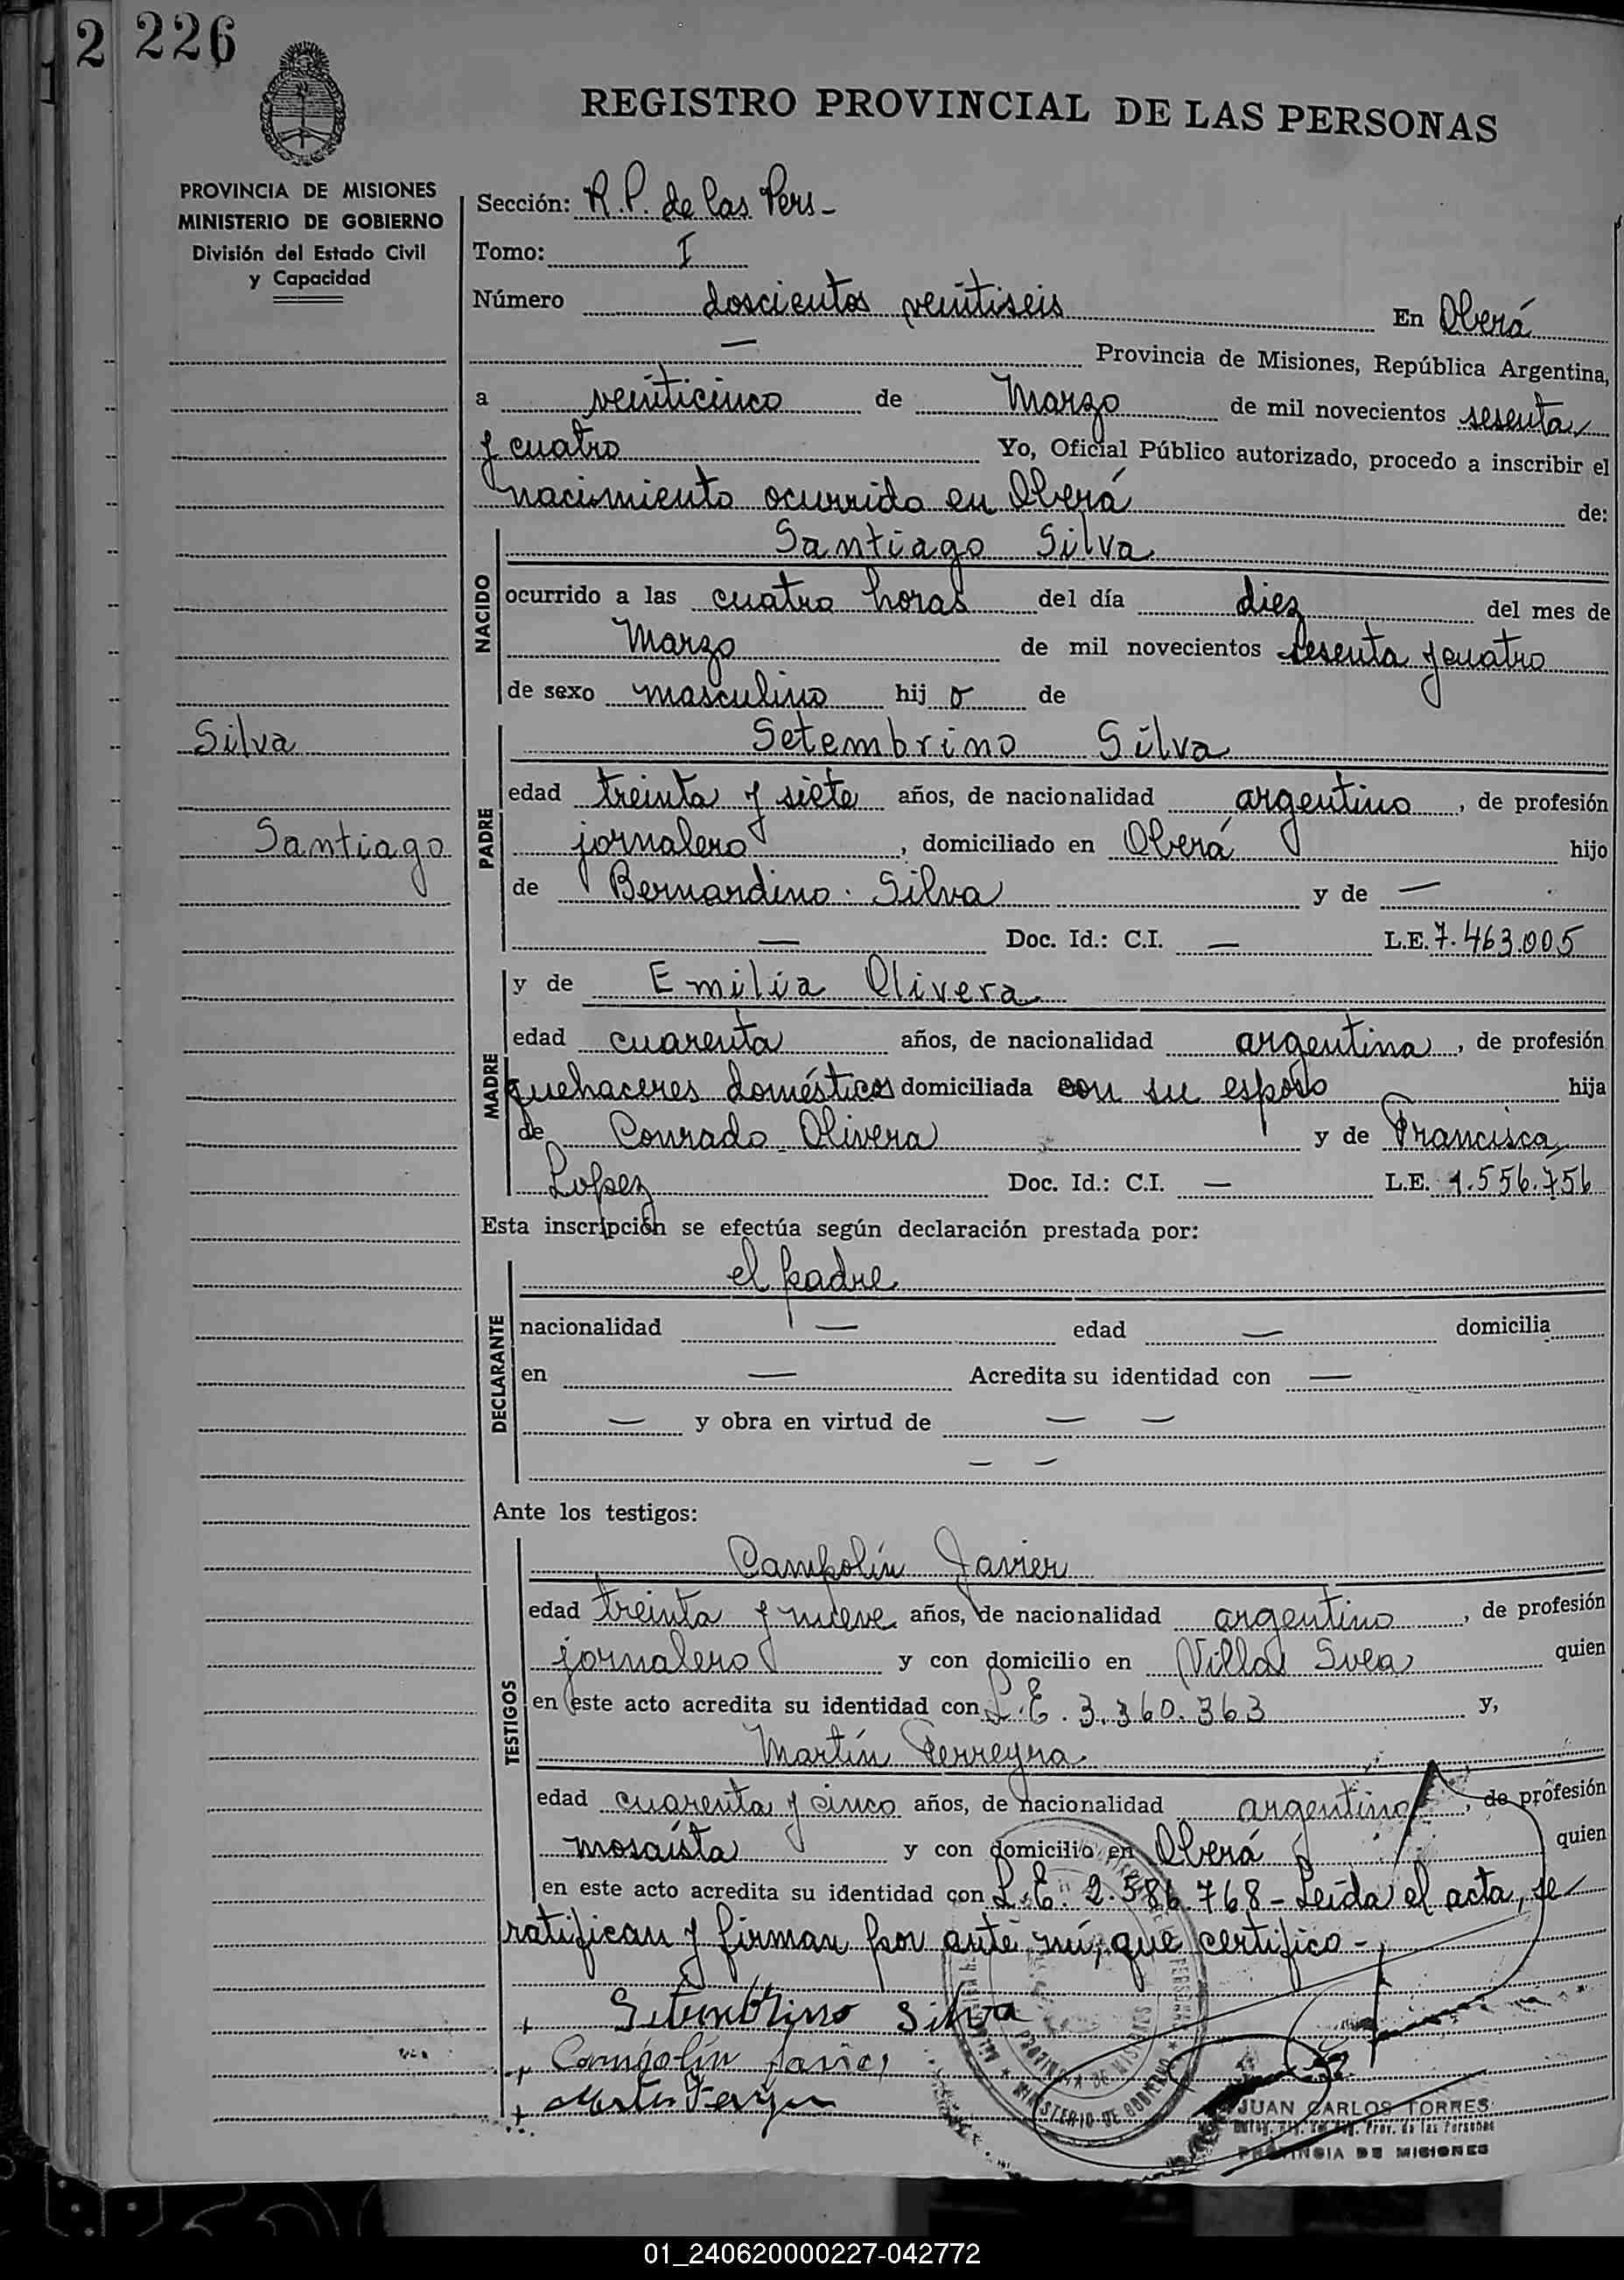 2 226
REGISTRO PROVINCIAL DE LAS PERSONAS
PROVINCIA DE MISIONES
MINISTERIO DE GOBIERNO
División del Estado Civil
y Capacidad
Sección: R.P. de las Pers -
Tomo: I
Número doscientos veintiseis En Oberá
— Provincia de Misiones, República Argentina,
a veinticinco de Marzo de mil novecientos sesenta
y cuatro Yo, Oficial Público autorizado, procedo a inscribir el
nacimiento ocurrido en Oberá de:
NACIDO
Santiago Silva
ocurrido a las cuatro horas del día diez del mes de
Marzo de mil novecientos sesenta y cuatro
de sexo masculino hij o de
Silva
Santiago
PADRE
Setembrino Silva
edad treinta y siete años, de nacionalidad argentino, de profesión
jornalero, domiciliado en Oberá hijo
de Bernardino Silva y de —
— Doc. Id.: C.I. — L.E. 7.463.005
MADRE
y de Emilia Olivera
edad cuarenta años, de nacionalidad argentina, de profesión
quehaceres domésticos domiciliada con su esposo hija
de Conrado Olivera y de Francisca
Lopez Doc. Id.: C.I. — L.E. 1.556.756
Esta inscripción se efectúa según declaración prestada por:
DECLARANTE
el padre
nacionalidad — edad — domicilia
en — Acredita su identidad con —
— y obra en virtud de — —
— —
Ante los testigos:
TESTIGOS
Campolín Javier
edad treinta y nueve años, de nacionalidad argentino, de profesión
jornalero y con domicilio en Villa Svea quien
en este acto acredita su identidad con L.E. 3.360.363 y,
Martín Ferreyra
edad cuarenta y cinco años, de nacionalidad argentino, de profesión
mosaísta y con domicilio en Oberá quien
en este acto acredita su identidad con L.E. 2.586.768 - Leída el acta, se
ratifican y firman por ante mí, que certifico -
+ Setembrino Silva
+ Campolín Javier
+
MINISTERIO DE GOBIERNO
PROVINCIA DE MISIONES
JUAN CARLOS TORRES
Prov. de las Personas
PROVINCIA DE MISIONES
01_240620000227-042772